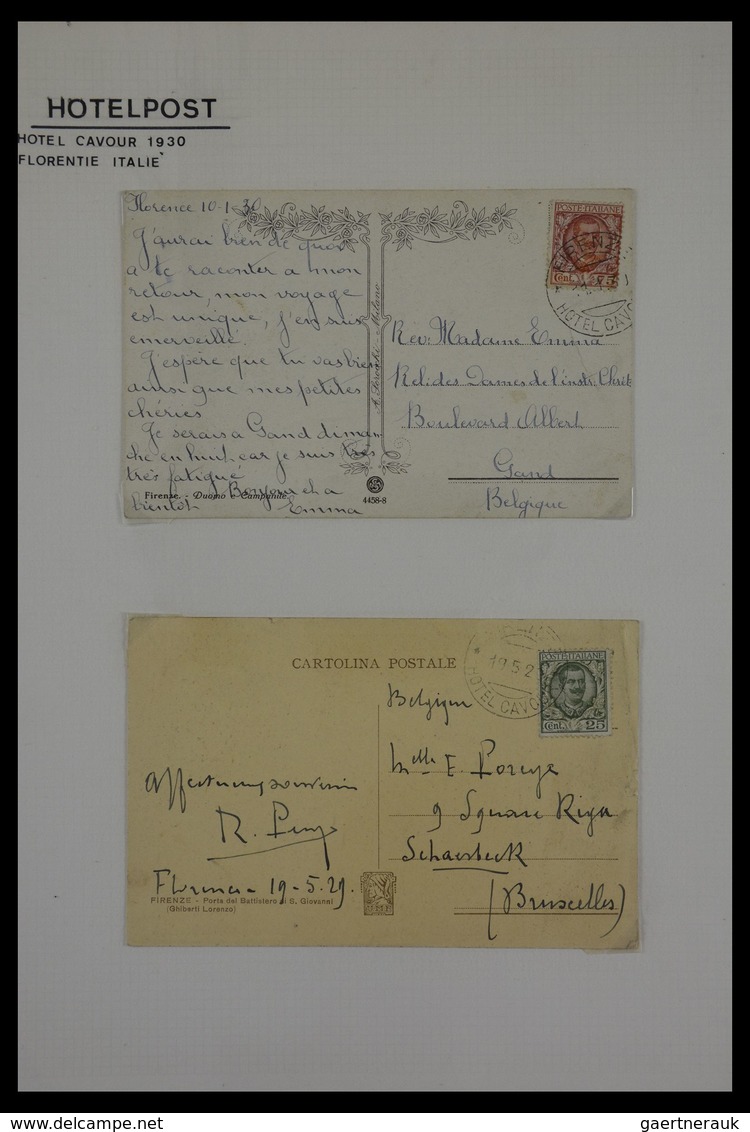 HOTELPOST
HOTEL CAVOUR 1930
FLORENTIE ITALIE
Florence 10-1-30
J'aurai bien de quoi
a te raconter a mon
retour, mon voyage
est unique, j'en suis
emerveillé.
J'espère que tu vas bien
ainsi que mes petites
chéries
Je serais a Gand diman-
che en huit car je suis très
très fatigué
Bonjour et a
bientot
Emma
Firenze. - Duomo e Campanile.
A. Milano
4458-8
POSTE·ITALIANE
Cent. 75
FIRENZE
HOTEL CAVO
Rev. Madame Emma
Rel: des Dames de l'instr. Chrét
Boulevard Albert
Gand
Belgique
CARTOLINA POSTALE
19.5.2
HOTEL CAVO
POSTE·ITALIANE
Cent. 25
Belgique
Melle E.
9 Square Riga
Schaerbeek
(Bruxelles)
R.
Florence - 19-5.29.
FIRENZE - Porta del Battistero di S. Giovanni
(Ghiberti Lorenzo)
gaertnerauk